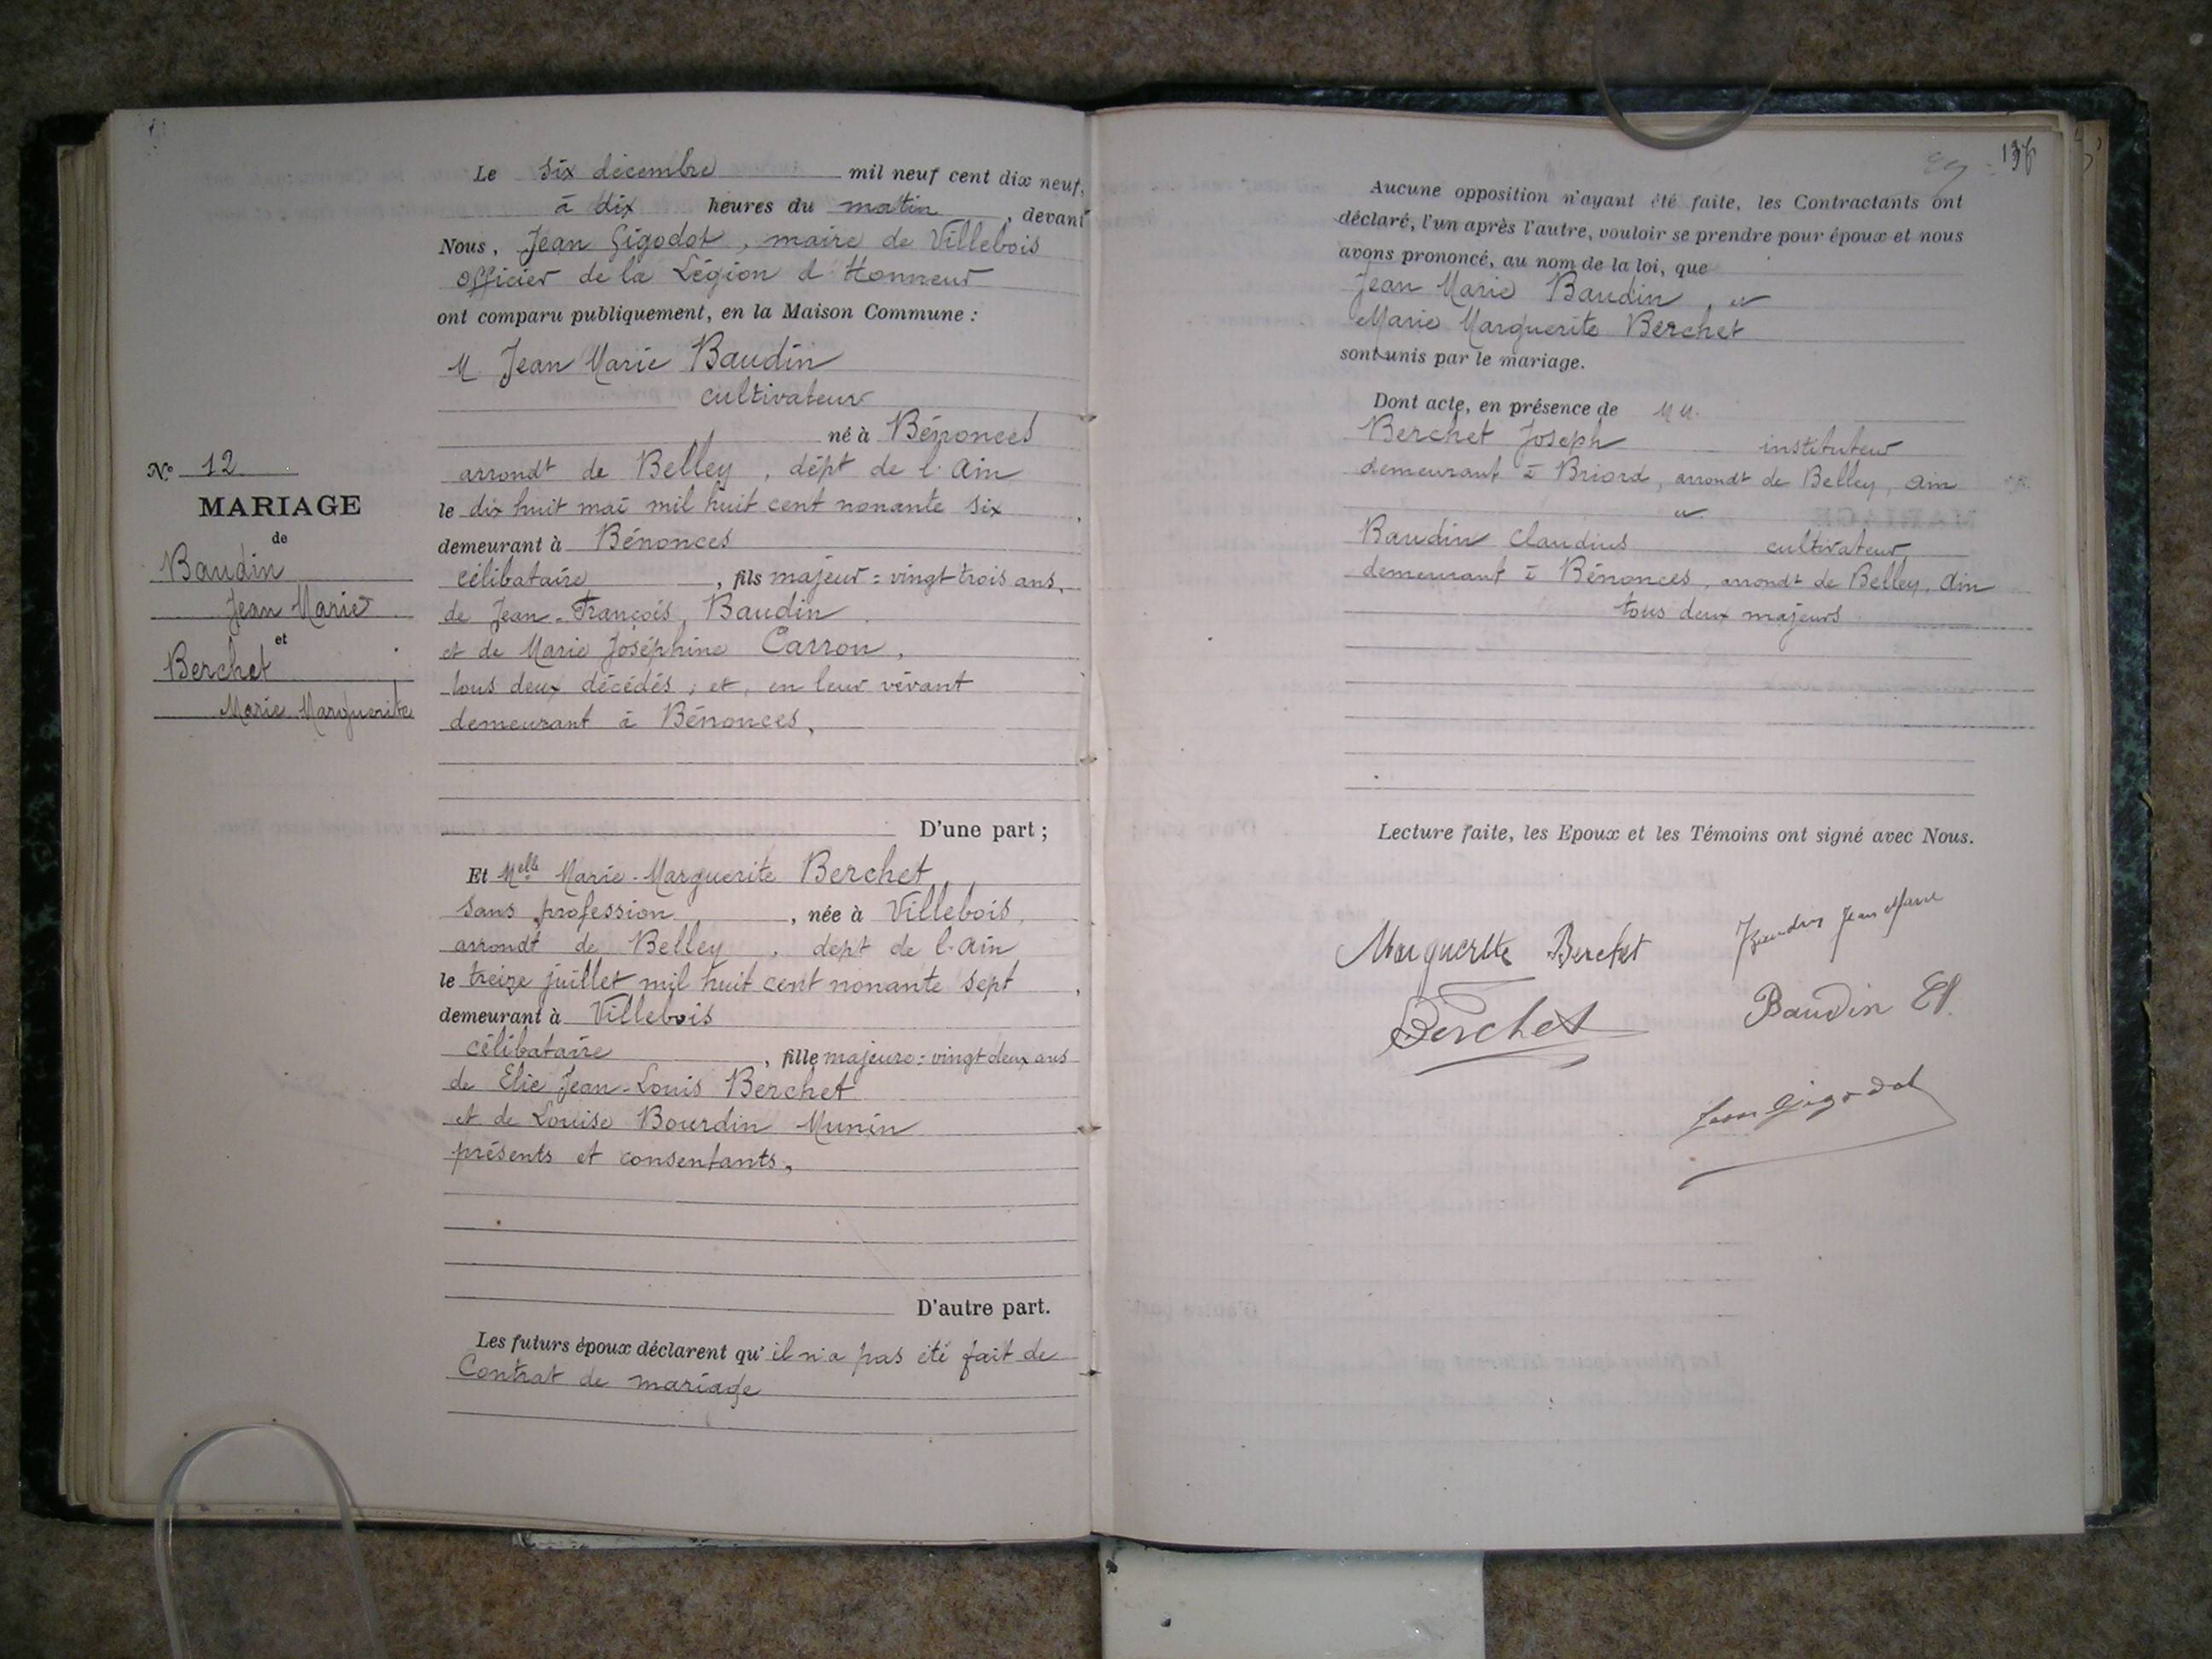 Le six décembre mil neuf cent dix neuf,
à dix heures du matin, devant
Nous, Jean Gigodot, maire de Villebois
officier de la Légion d'Honneur
ont comparu publiquement, en la Maison Commune :
M. Jean Marie Baudin
cultivateur
né à Bénonces
arrondt de Belley, dépt de l'Ain
le dix huit mai mil huit cent nonante six,
demeurant à Bénonces
célibataire, fils majeur = vingt trois ans,
de Jean-François Baudin
et de Marie Joséphine Carron,
tous deux décédés ; et, en leur vivant
demeurant à Bénonces,
D'une part ;
Et Melle Marie-Marguerite Berchet
sans profession, née à Villebois,
arrondt de Belley, dept de l'Ain
le treize juillet mil huit cent nonante sept,
demeurant à Villebois
célibataire, fille majeure = vingt deux ans
de Elie Jean-Louis Berchet
et de Louise Bourdin Munin
présents et consentants,
D'autre part.
Les futurs époux déclarent qu'il n'a pas été fait de
Contrat de mariage
No 12
MARIAGE
de
Baudin
Jean Marie
et
Berchet
Marie Marguerite
Aucune opposition n'ayant été faite, les Contractants ont
déclaré, l'un après l'autre, vouloir se prendre pour époux et nous
avons prononcé, au nom de la loi, que
Jean Marie Baudin, et
Marie Marguerite Berchet
sont unis par le mariage.
Dont acte, en présence de MM.
Berchet Joseph instituteur
demeurant à Briord, arrondt de Belley, Ain
et
Baudin Claudius cultivateur,
demeurant à Bénonces, arrondt de Belley, Ain
tous deux majeurs
Lecture faite, les Epoux et les Témoins ont signé avec Nous.
Marguerite Berchet Baudin Jean Marie
Berchet Baudin Cl.
Jean Gigodot